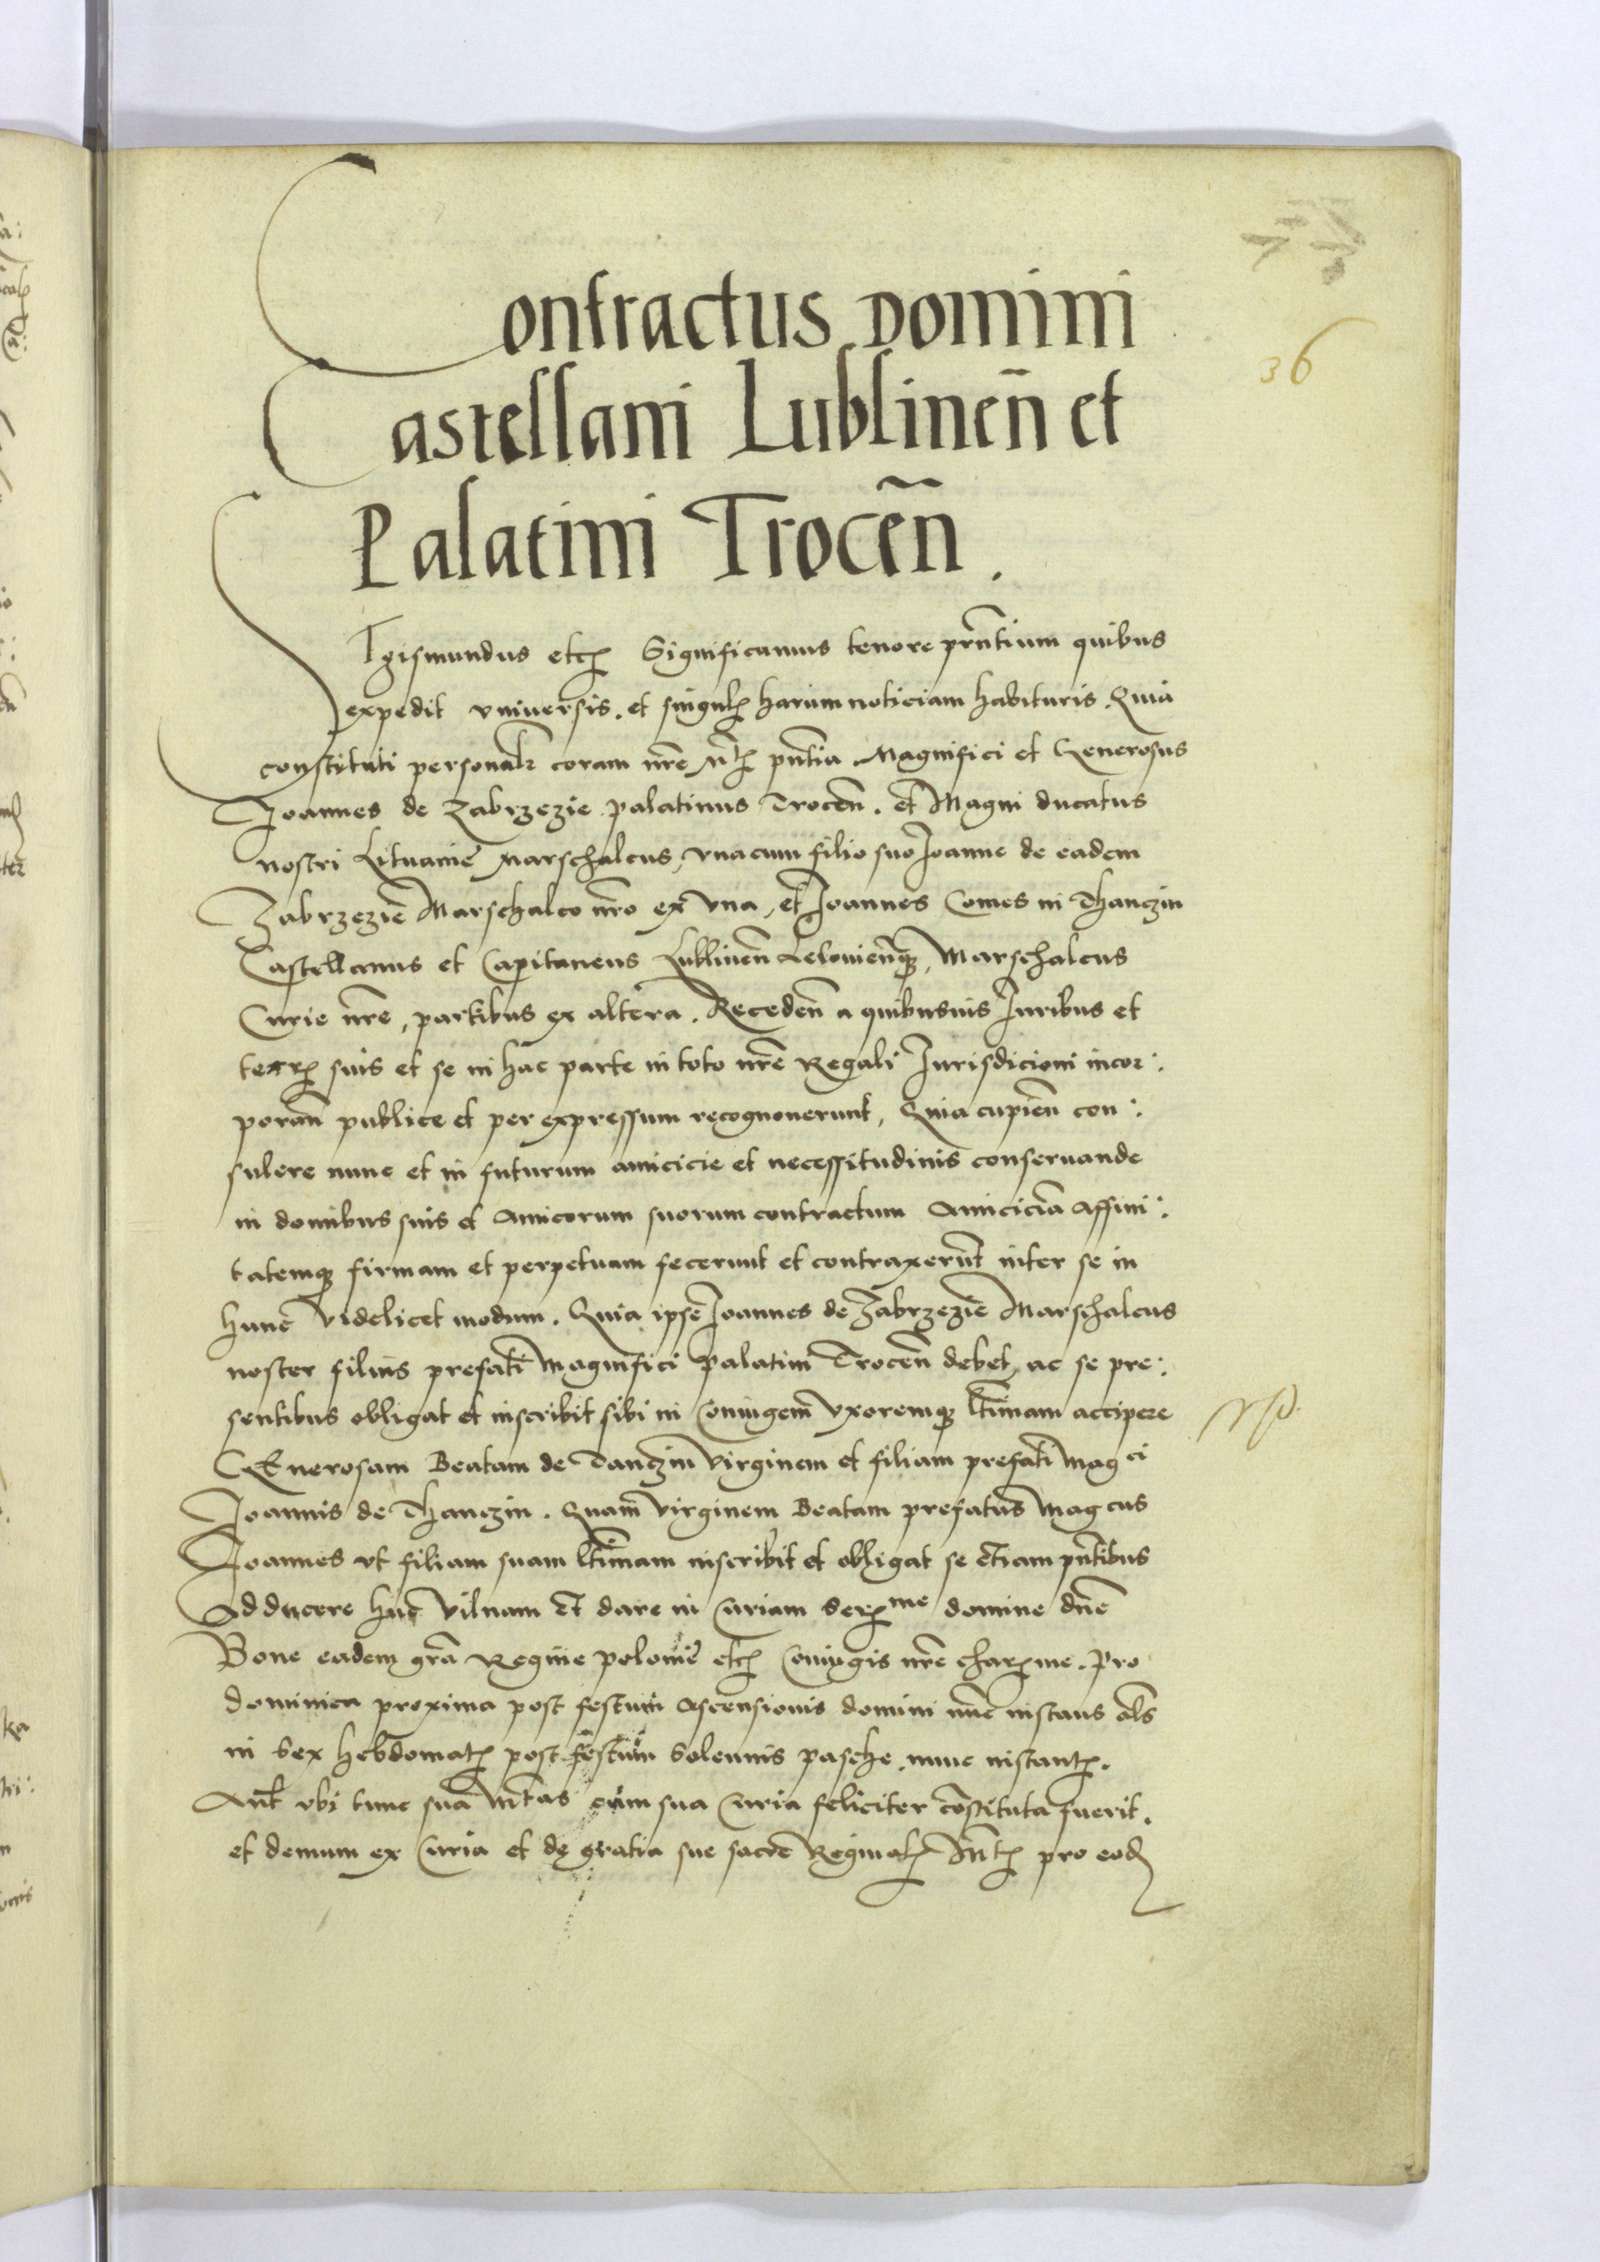 Contractus Domini
Castellani Lublinen̄ et
Palatini Trocen̄.
36
SIgismundus etc̄ Significamus tenore pn̄tium quibus
expedit vniuersis. et singul̄ harum noticiam habituris. Quia
constituti personalr̄ coram nr̄e Mt̄ pn̄tia Magnifici et Generosus
Joannes de Zabrzezie palatinus Trocen̄. et Magni ducatus
nostri Lituanie Marschalcus, vnacum filio suo Joanne de eadem
Zabrzezie Marschalco nr̄o ex vna, et Joannes Comes in Thanczin
Castellanus et Capitaneus Lublinen̄ Lelouien̄q3, Marschalcus
Curie nr̄e, partibus ex altera. Receden̄ a quibusuis Iuribus et
terr̄ suis et se in hac parte in toto nr̄e Regali Iurisdicioni incor:
poran̄ publice et per expressum recognouerunt, Quia cupien̄ con:
sulere nunc et in futurum amicicie et necessitudinis conseruande
in domibus suis et Amicorum suorum contractum Amiciciā Affini:
tatemq3 firmam et perpetuam fecerunt et contraxerūt inter se in
hunc videlicet modum. Quia ipse Joannes de Zabrzezie Marschalcus
noster filius prefati Magnifici palatini Trocen̄ debet, ac se pre:
sentibus obligat et inscribit sibi in Coniugem vxoremq3 lt̄imam accipere
GEnerosam Beatam de Tanczin virginem et filiam prefati Magci
Joannis de Thanczin. Quam virginem Beatam prefatus Magcus
Joannes vt filiam suam lt̄imam inscribit et obligat se etiam pn̄tibus
Adducere huc Vilnam et dare in Curiam Ser̄me domine dn̄e
Bone eadem grā Regine polonie etc̄ Coniugis nr̄e char̄me. Pro
dominica proxima post festum Ascensionis domini nūc instans als̄
in sex hebdomat̄ post festum solennis pasche nunc instant̄.
Aut vbi tunc sua Mtas cum sua Curia feliciter cōstituta fuerit.
et demum ex Curia et de gratia sue sacre Reginal̄ Mt̄ pro eod̄